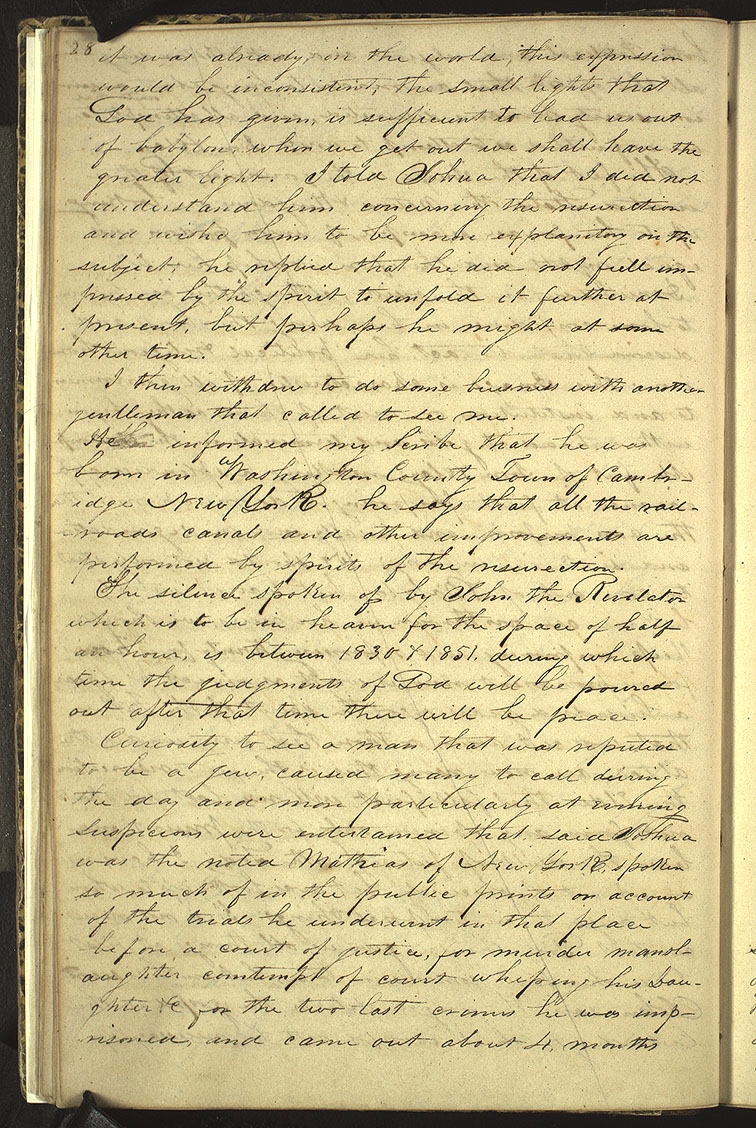 28
it was already in the world, this expression
would be inconsistent, the small lights that
God has given, is sufficient to lead us out
of babylon, when we get out we shall have the
greater light. I told Joshua that I did not
understand him concerning the resurection
and wishd him to be more explanitory on the
subject; he replied that he did not feell im-
pressed by the spirit to unfold it further at
present, but perhaps he might at some
other time.
I then withdrew to do some buisness with another
gentleman that called to see me.
He informed my Scribe that he was
born in Washington County Town of Cambr-
idge New York. he says that all the rail-
roads canals and other improvements are
performed by spirits of the resurection.
The silence spoken of by John the Revelator
which is to be in heaven for the space of half
an hour, is between 1830 & 1851, during which
time the judgments of God will be poured
out after that time there will be peace.
Curiosity to see a man that was reputed
to be a jew, caused many to call during
the day and more particularly at evening
suspicions were entertained that said Joshua
was the noted Mathias of New York, spoken
so much of in the public prints on account
of the trials he underwent in that place
before a court of justice, for murder mansl-
aughter comtempt of court whiping his Dau-
ghter &c for the two last crimes he was imp-
risoned, and came out about 4, months